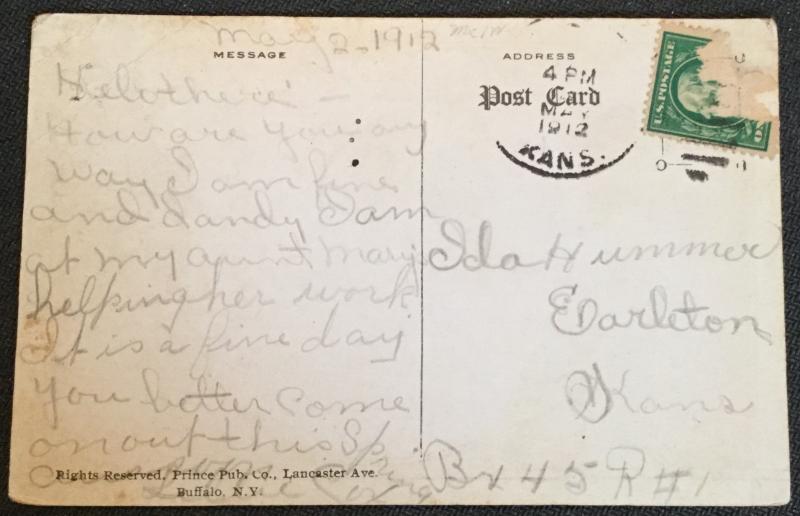 May 2, 1912
MESSAGE
Hello there! -
How are you any
way, I am fine
and dandy I am
at my aunt Mary's
helping her work
It is a fine day
You better come
on out this Sp
Rights Reserved, Prince Pub. Co., Lancaster Ave.
Buffalo, N.Y.
ADDRESS
Post Card
4 PM
MAY
1912
KANS.
U.S. POSTAGE
Ida Hummer
Carleton
Kans
Bx 45 R#1